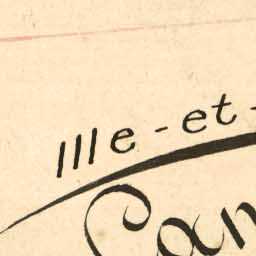 Ille-et-
Can